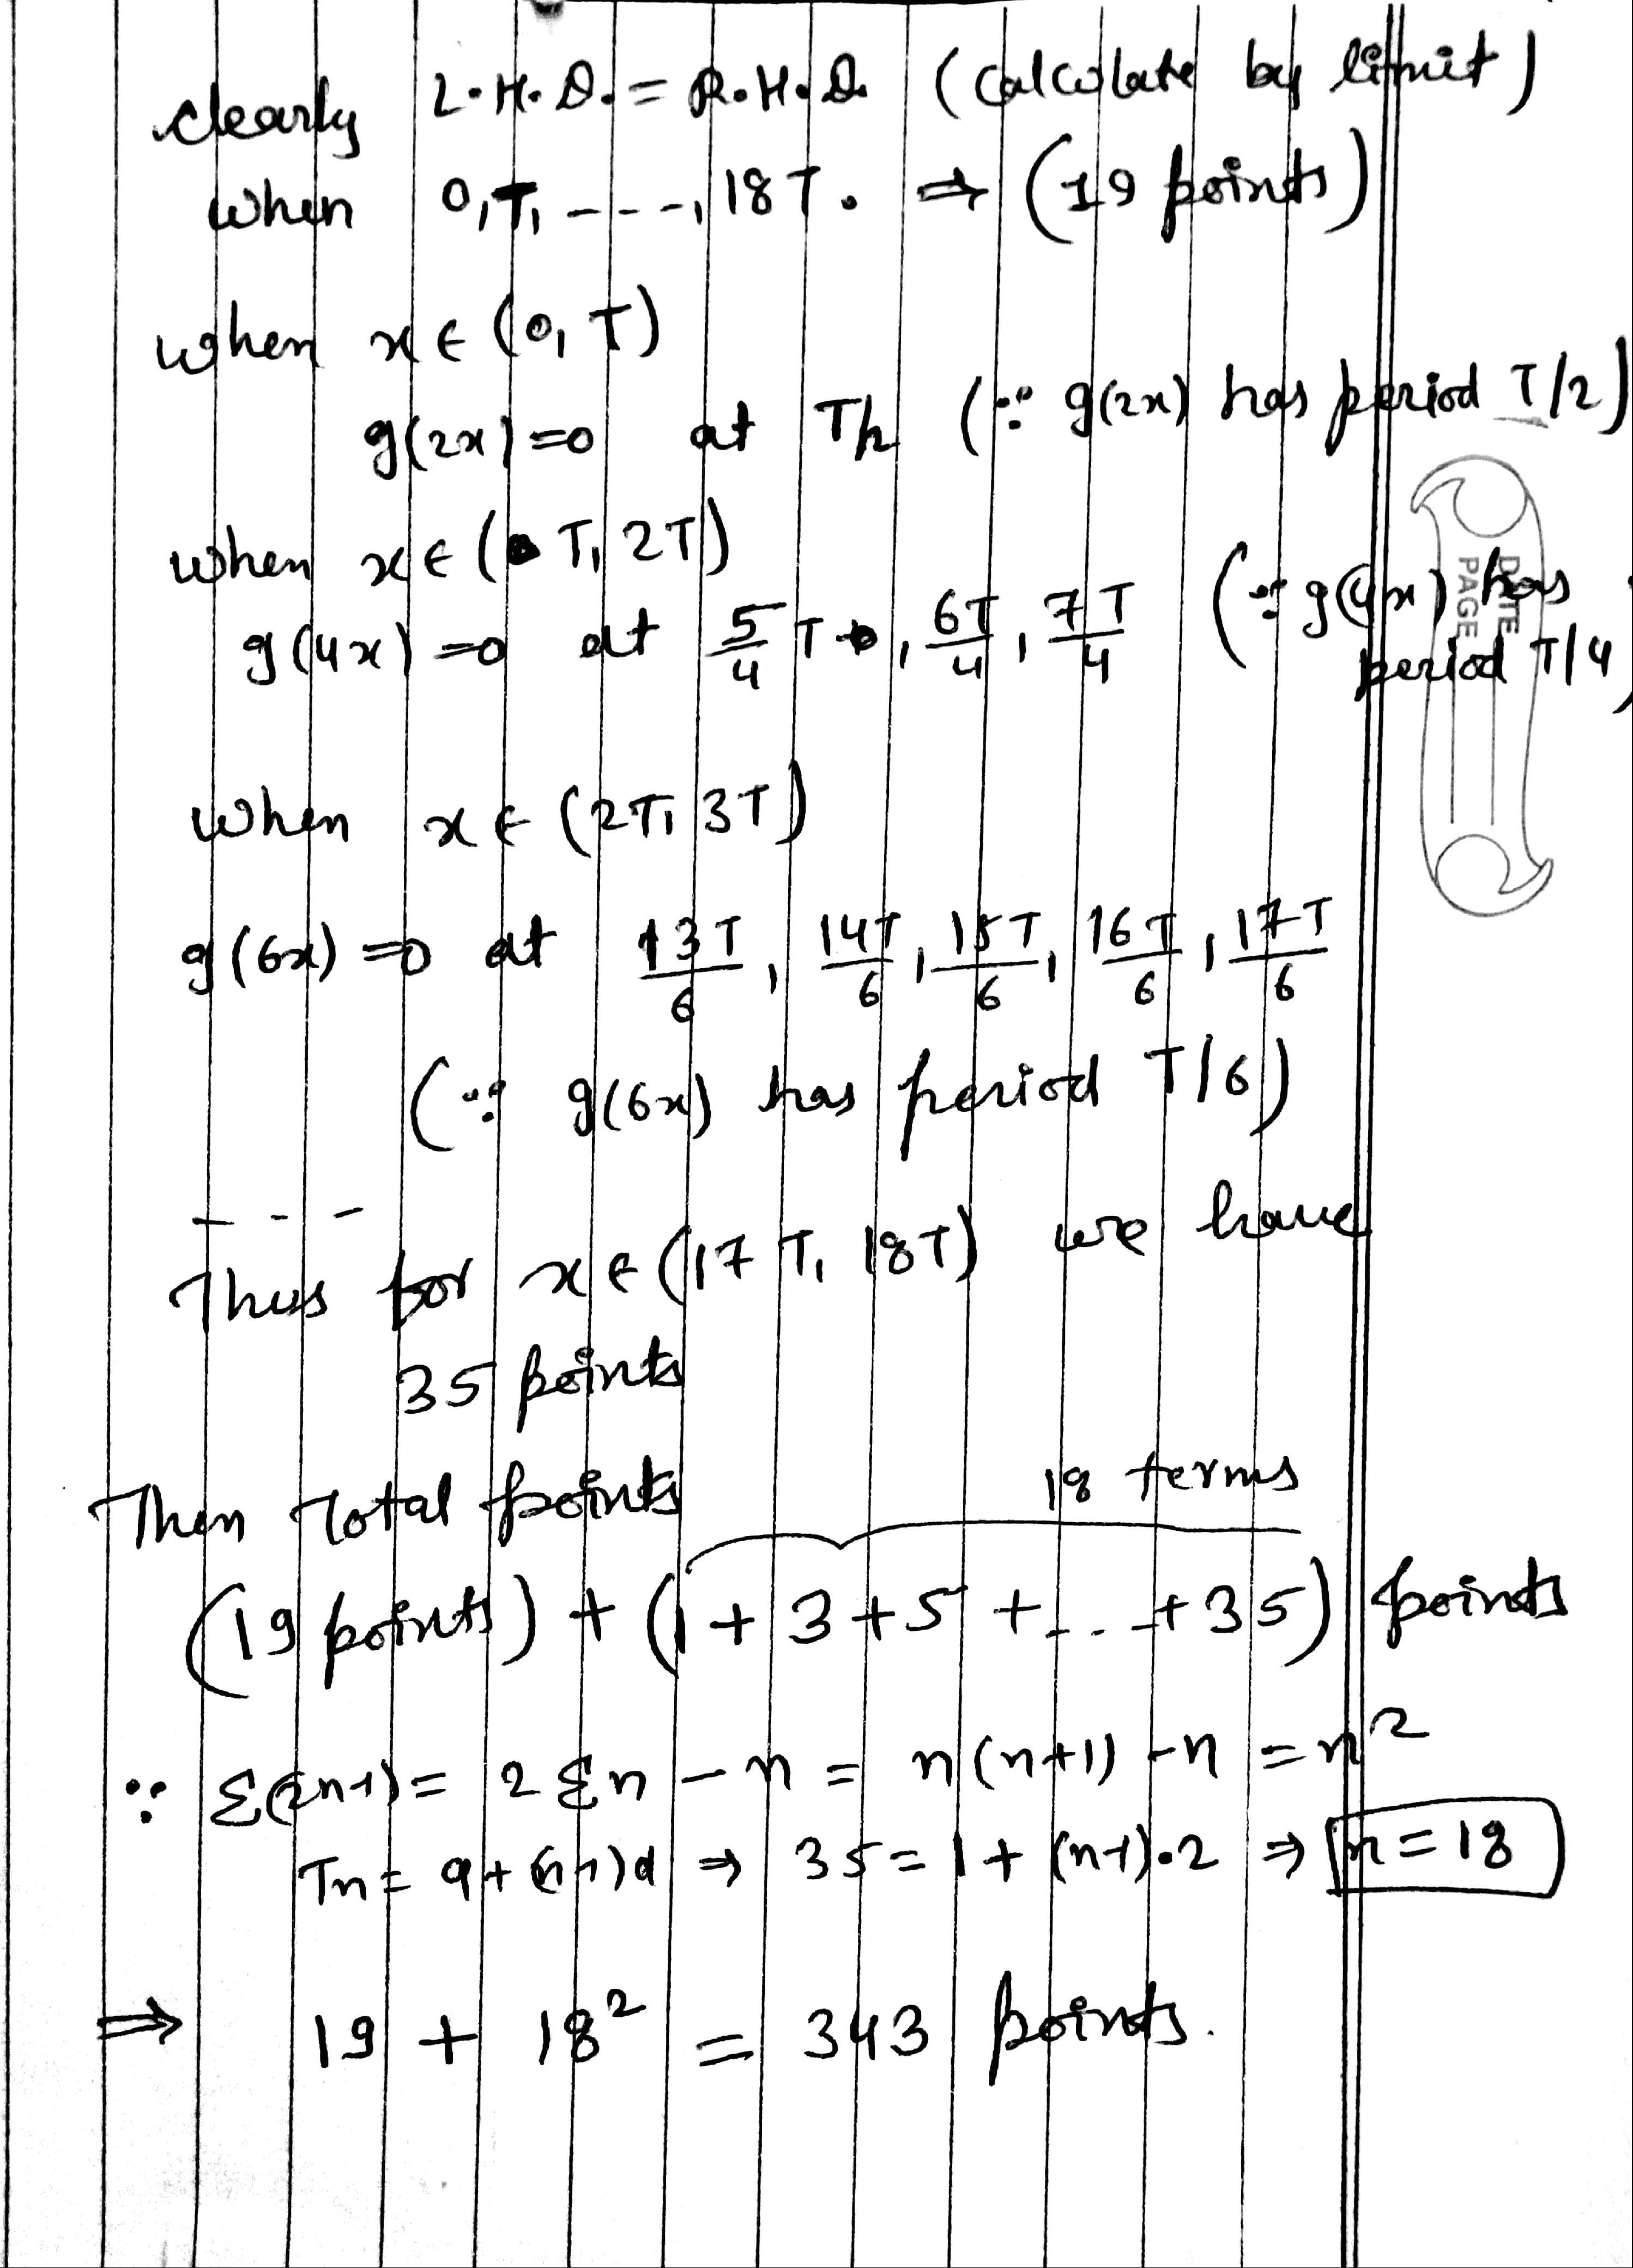 clearly L.H.D. = R.H.D. (Calculate by limit)
when 0, T, ----, 18T. ⇒ (19 points)
when x ∈ (0, T)
g(2x) = 0 at T/2 (∵ g(2x) has period T/2)
when x ∈ (T, 2T)
g(4x) = 0 at 5/4 T, 6T/4, 7T/4 (∵ g(4x) has
period T/4)
DATE
PAGE
when x ∈ (2T, 3T)
g(6x) = 0 at 13T/6, 14T/6, 15T/6, 16T/6, 17T/6
(∵ g(6x) has period T/6)
- - -
Thus for x ∈ (17T, 18T) we have
35 points
Then Total points 18 terms
(19 points) + (1 + 3 + 5 + --- + 35) points
∵ Σ(2n-1) = 2Σn - n = n(n+1) - n = n²
Tn = a + (n-1)d ⇒ 35 = 1 + (n-1)·2 ⇒ n = 18
⇒ 19 + 18² = 343 points.